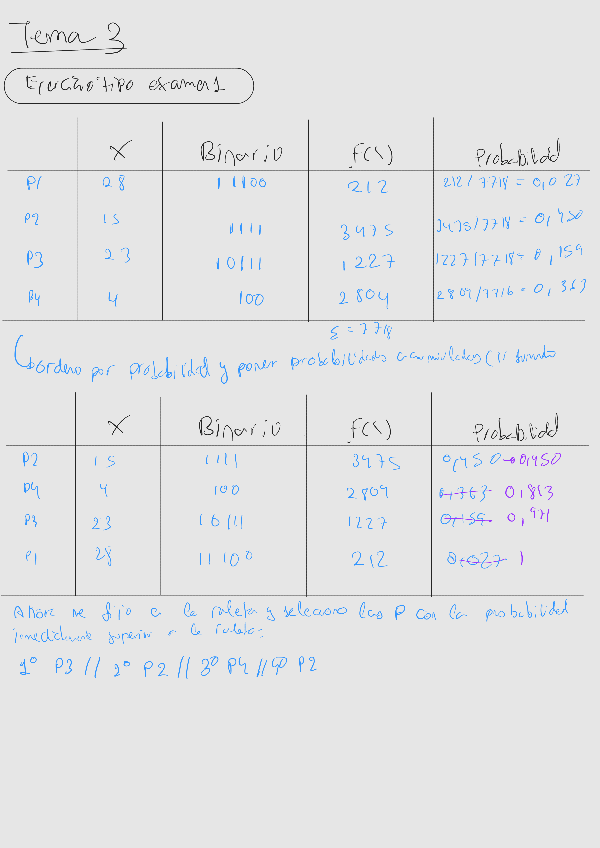 Tema 3
Ejercicio tipo examen 1
X Binario f(x) Probabilidad
P1 28 11100 212 212/7718 = 0,027
P2 15 1111 3475 3475/7718 = 0,450
P3 23 10111 1227 1227/7718 = 0,159
P4 4 100 2804 2804/7718 = 0,363
Σ = 7718
ordeno por probabilidad y poner probabilidades acumuladas
X Binario f(x) Probabilidad
P2 15 1111 3475 0,450 → 0,450
P4 4 100 2804 0,363 0,813
P3 23 10111 1227 0,159 0,971
P1 28 11100 212 0,027 1
Ahora me fijo a la ruleta y selecciono las P con la probabilidad
inmediatamente superior a la ruleta:
1º P3 // 2º P2 // 3º P4 // 4º P2